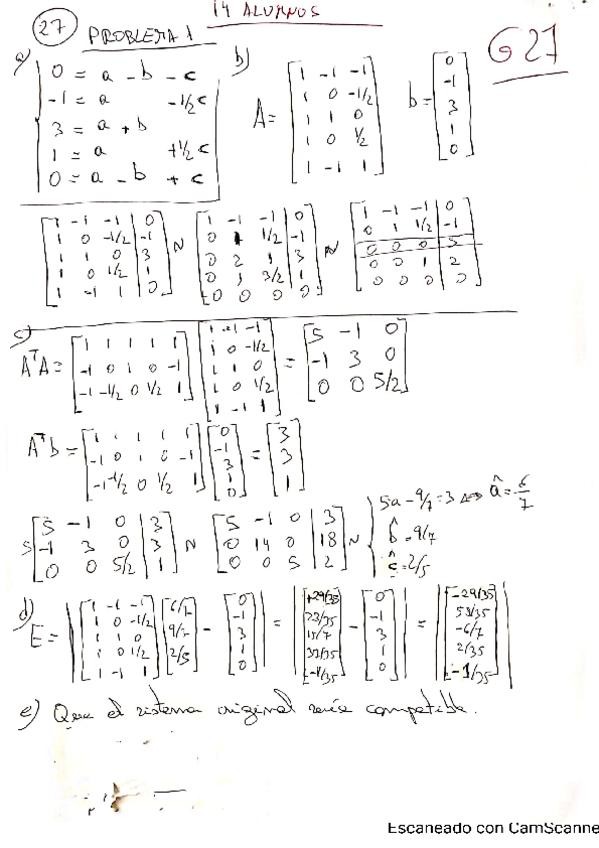 14 ALUMNOS
27 PROBLEMA 1
G27
a) 0 = a - b - c
-1 = a -1/2c
3 = a + b
1 = a +1/2 c
0 = a - b + c
b) A = [1 -1 -1; 1 0 -1/2; 1 1 0; 1 0 1/2; 1 -1 1] b = [0; -1; 3; 1; 0]
[1 -1 -1 | 0; 1 0 -1/2 | -1; 1 1 0 | 3; 1 0 1/2 | 1; 1 -1 1 | 0] ~ [1 -1 -1 | 0; 0 1 1/2 | -1; 0 2 1 | 3; 0 1 3/2 | 1; 0 0 0 | 0] ~ [1 -1 -1 | 0; 0 1 1/2 | -1; 0 0 0 | 5; 0 0 1 | 2; 0 0 0 | 0]
c) AᵀA = [1 1 1 1 1; -1 0 1 0 -1; -1 -1/2 0 1/2 1] [1 -1 -1; 1 0 -1/2; 1 1 0; 1 0 1/2; 1 -1 1] = [5 -1 0; -1 3 0; 0 0 5/2]
Aᵀb = [1 1 1 1 1; -1 0 1 0 -1; -1 -1/2 0 1/2 1] [0; -1; 3; 1; 0] = [3; 3; 1]
5 [5 -1 0 | 3; -1 3 0 | 3; 0 0 5/2 | 1] ~ [5 -1 0 | 3; 0 14 0 | 18; 0 0 5 | 2] ~ { 5a - 9/7 = 3 ⇔ â = 6/7; b̂ = 9/7; ĉ = 2/5
d) E = |[1 -1 -1; 1 0 -1/2; 1 1 0; 1 0 1/2; 1 -1 1] [6/7; 9/7; 2/5] - [0; -1; 3; 1; 0]| = |[-29/35; 23/35; 15/7; 37/35; -1/35] - [0; -1; 3; 1; 0]| = |[-29/35; 58/35; -6/7; 2/35; -1/35]|
e) Que el sistema original sería compatible.
Escaneado con CamScanne